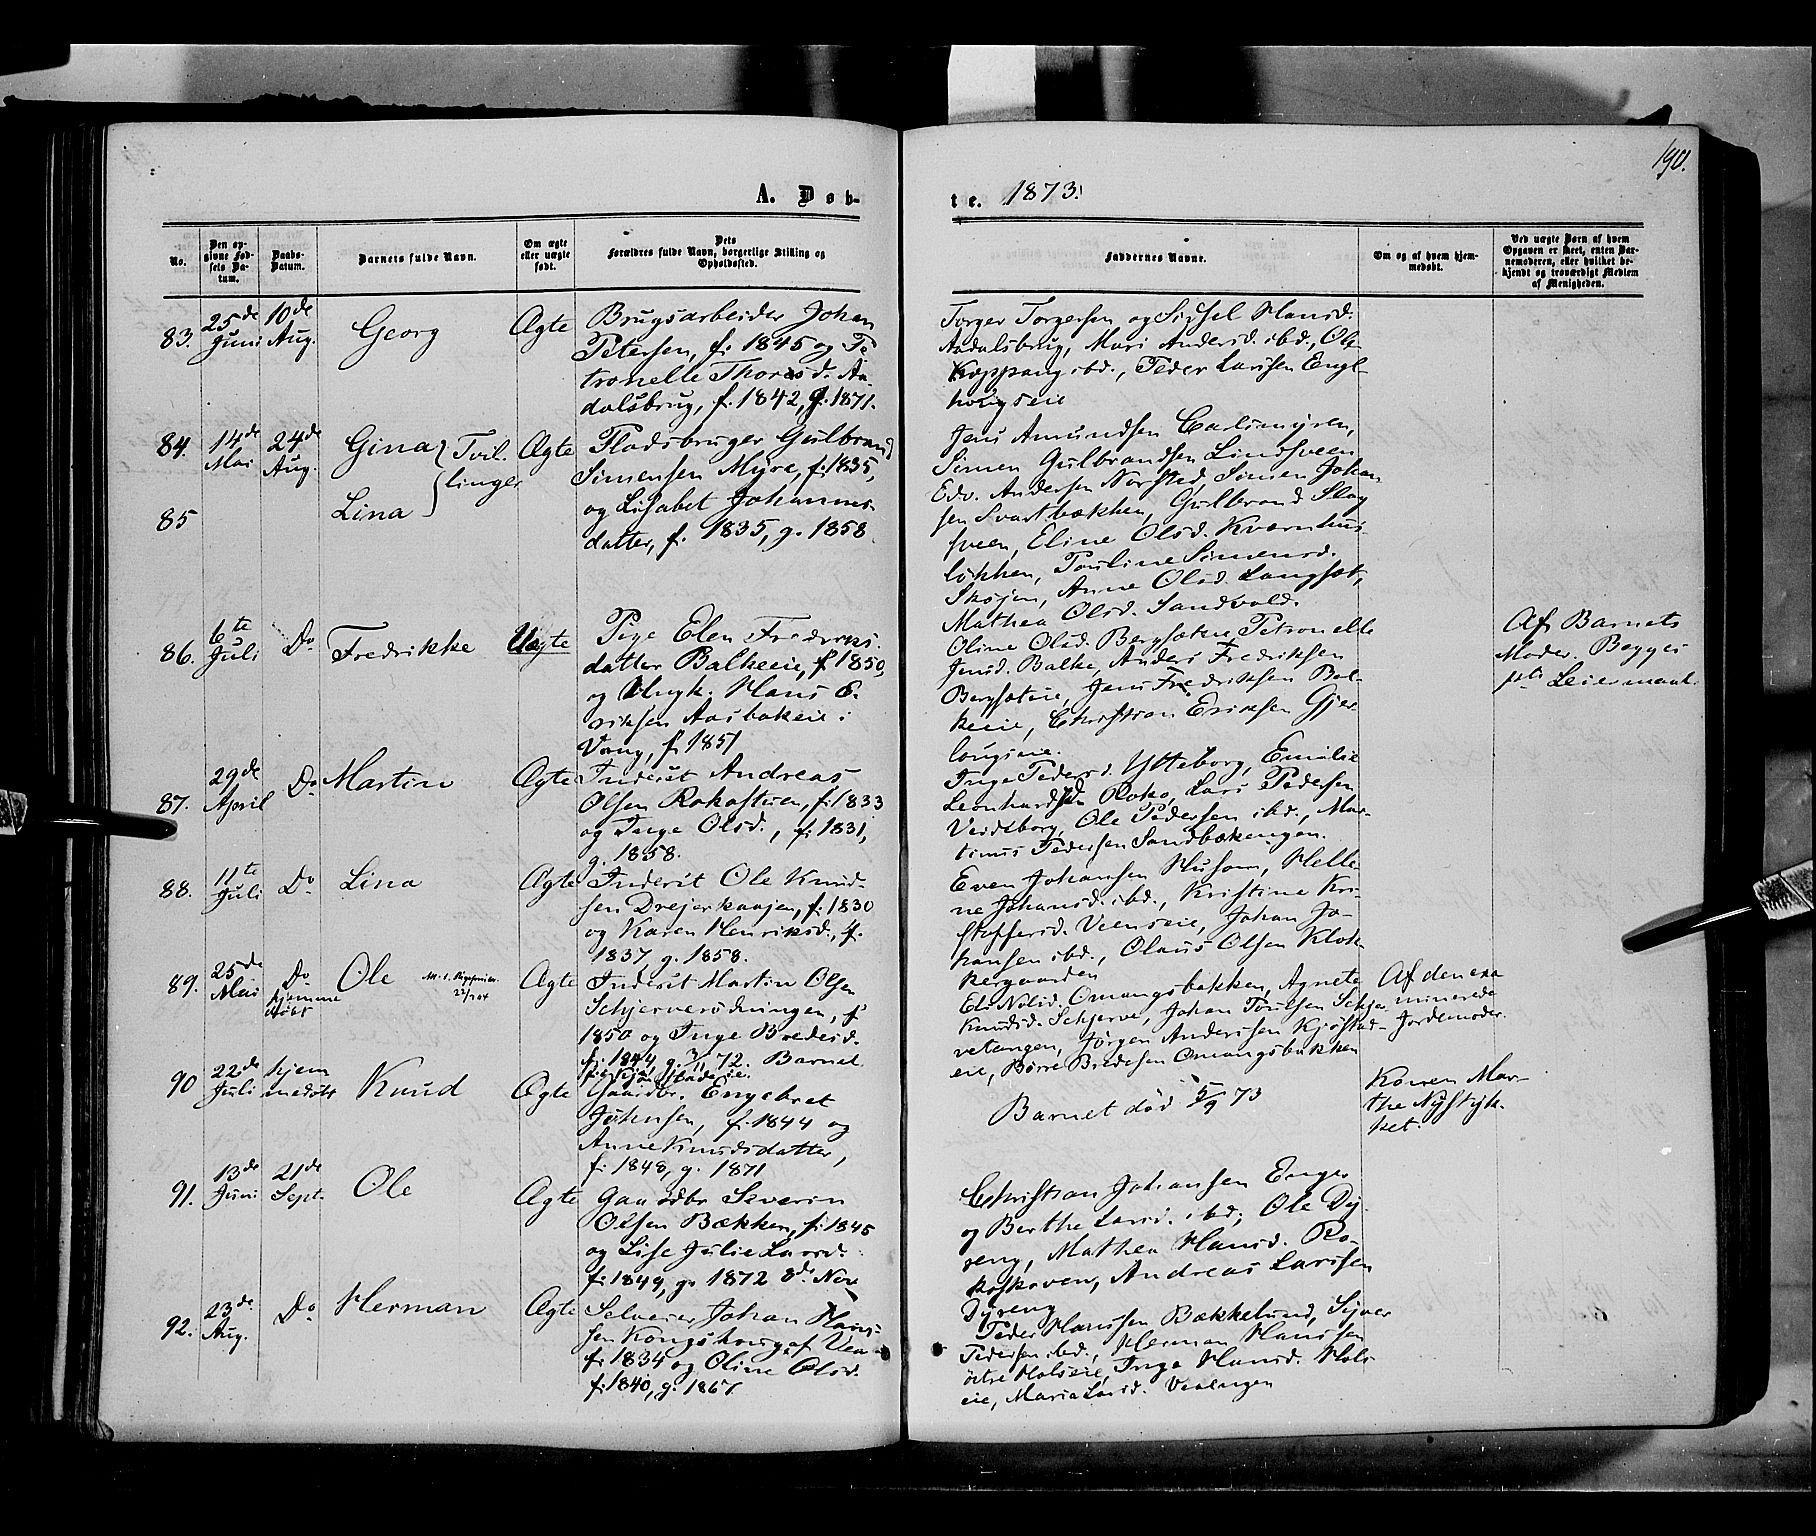 190.
A. Døb-
te. 1873.
No.
Den opgivne Fødsels Datum.
Daabs-Datum.
Barnets fulde Navn.
Om ægte eller uægte født.
Dets Forældres fulde Navn, borgerlige Stilling og Opholdssted.
Faddernes Navne.
Om og af hvem hjemmedøbt.
Ved uægte Børn af hvem Opgaven er skeet, enten Barnemoderen, eller hvilket bekjendt og troværdigt Medlem af Menigheden.
83. 25de Juni
10de Aug.
Georg
Ægte
Brugsarbeider Johan
Petersen, f. 1845 og Pe
tronelle Thorsd. Aa-
dalsbrug, f. 1842, g. 1871.
Torger Torgersen og Sissel Hansd.
Aadalsbrug, Mari Andersd. ibd., Ole
Koppang ibd., Peder Larssen Engl-
84. 14de Mai
24de Aug.
Gina } Tvil-
85 Lina } linger
Ægte
Pladsbruger Gulbrand
Simensen Myre, f. 1835,
og Lisabet Johannes-
datter, f. 1835, g. 1858.
Jens Amundsen Carlsmyren,
Simen Gulbrandsen Lindsveen
Edv. Andersen Norsted, Simen Johan-
sen Svartbækken, Gulbrand Slag
sveen, Eline Olsd. Kværnhus
løkken, Pauline Simensd.
Skøjen, Anne Olsd. Langsæt,
Mathea Olsd. Sandvold.
86. 6te Juli
Do
Fredrikke
Uægte
Pige Elen Fredriks.
datter Balkeeie, f. 1850,
og Ungk. Hans E-
riksen Aasbakeie i
Vang, f. 1851
Oline Olsd. Bergsæteie, Petronelle
Jensd. Balke, Anders Fredriksen
Bergsæteie, Jens Fredriksen Bal-
keeie, Christian Eriksen Gjer-
Af Barnets
Moder. Begges
1ste Leiermaal.
87. 29de April
Do
Martin
Ægte
Inderst Andreas
Olsen Rokosteren, f. 1833
og Inge Olsd., f. 1831,
g. 1858.
Inge Pedersd. Ytteborg, Emilie
Leonhardsd. Roko, Lars Pedersen
Veidsborg, Ole Pedersen ibd., Mar-
tinus Pedersen Sandbækengen.
88. 11te Juli
Do
Lina
Ægte
Inderst Ole Knud-
sen Drejerkaajen, f. 1830
og Karen Henriksd., f.
1837, g. 1858.
Even Johansen Husom, Helle
ne Johansd. ibd., Kristine Kri-
stoffersd. Veenseie, Johan Jo-
hansen ibd., Olaus Olsen Klok
kergaarden
89. 25de Mai
Do hjemme døbt
Ole
Ægte
Inderst Martin Olsen
Schjerverødningen, f.
1850 og Inge Bredesd.
f. 1844, g. 3/11 72. Barnet
Eli Nilsd. Omangsbakken, Agnete
Knudsd. Schjerve, Johan Poulsen Schjer
vetangen, Jørgen Anderssen Kjøstad-
eie, Børre Bredesen Omangsbakken
Af den exa
minerede
Jordemoder.
90 22de Juli
hjem medøbt
Knud
Ægte
Gaardbr. Engebret
Johnsen, f. 1844 og
Anne Knudsdatter,
f. 1848, g. 1871
Barnet död 5/9 73
Karen Mar-
the Nystyk-
ket.
91. 13de Juni
21de Sept.
Ole
Ægte
Gaardbr Severin
Olsen Bækken, f. 1845
og Lise Julie Larsd.
f. 1849, g. 1872 8de Nov
Christian Johansen Enger
og Berthe Larsd. ibd., Ole Dy
reng, Mathea Hansd. Ro-
koskoven, Andreas Larssen
Dyreng
92. 23de Aug.
Do
Herman
Ægte
Selveier Johan Hans-
sen Kongshoug af Vea-
f. 1834 og Oline Olsd.
f. 1840, g. 1867
Peder Hanssen Bækkelund, Sijver
Pedersen ibd., Herman Hanssen
østre Holseie, Inge Hansd. Hols-
eie, Maria Larsd. Vealangen